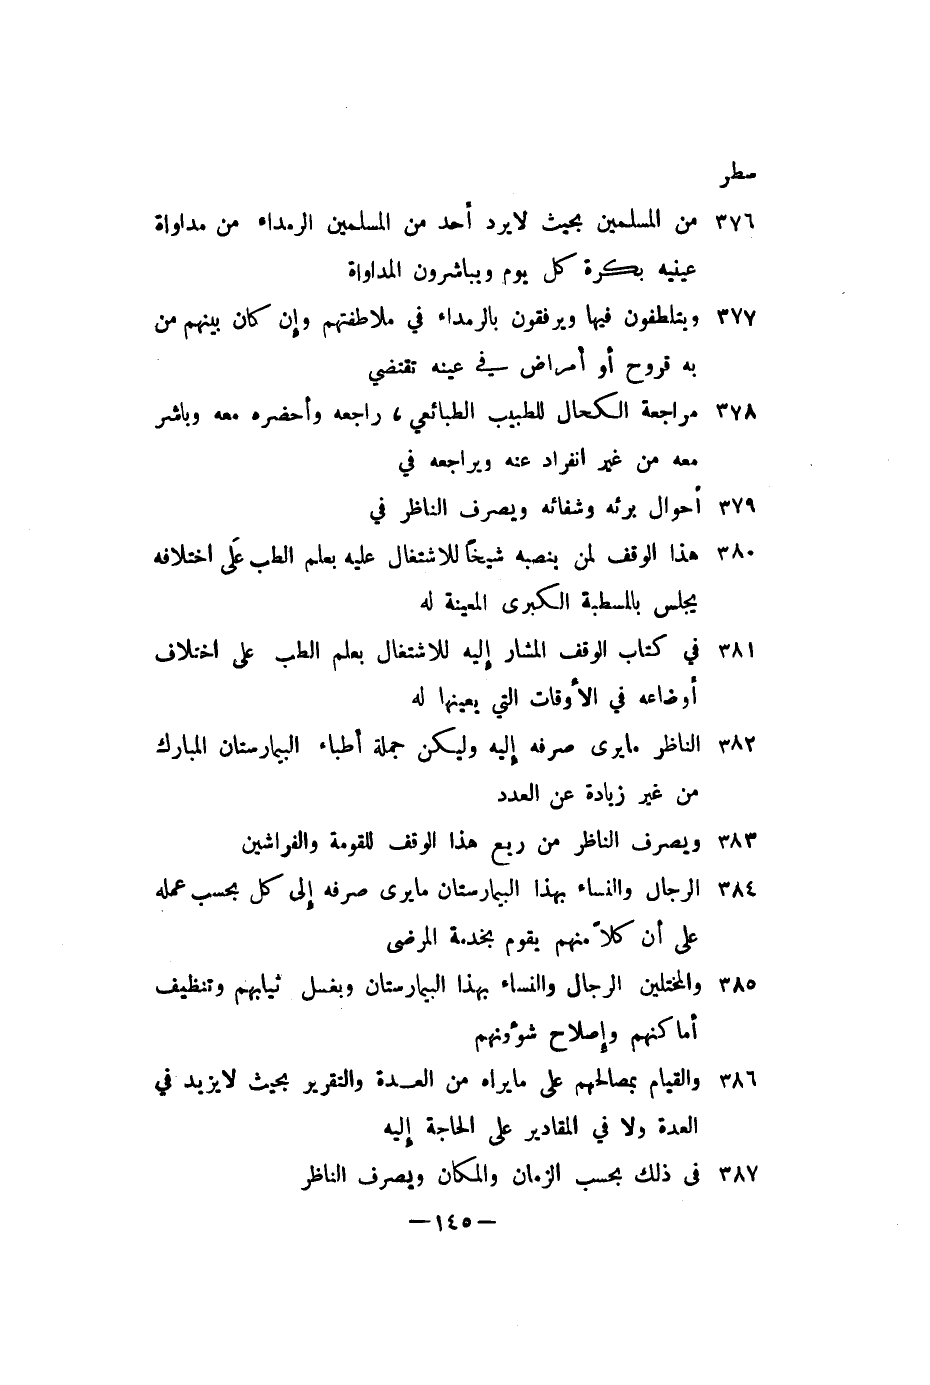 سطر
٣٧٦ من المسلمين بحيث لايرد أحد من المسلمين الرمداء من مداواة
عينيه بكرة كل يوم ويباشرون المداواة
٣٧٧ ويتلطفون فيها ويرفقون بالرمداء في ملاطفتهم وإن كان بينهم من
به قروح أو أمراض في عينه تقتضي
٣٧٨ مراجعة الكحال للطبيب الطبائعي، راجعه وأحضره معه وباشر
معه من غير انفراد عنه ويراجعه في
٣٧٩ أحوال برئه وشفائه ويصرف الناظر في
٣٨٠ هذا الوقف لمن ينصبه شيخاً للاشتغال عليه بعلم الطب عَلَى اختلافه
يجلس بالمسطبة الكبرى المعينة له
٣٨١ في كتاب الوقف المشار إليه للاشتغال بعلم الطب على اختلاف
أوضاعه في الأوقات التي يعينها له
٣٨٢ الناظر مايرى صرفه إليه وليكن جملة أطباء البيمارستان المبارك
من غير زيادة عن العدد
٣٨٣ ويصرف الناظر من ريع هذا الوقف للقومة والفراشين
٣٨٤ الرجال والنساء بهذا البيمارستان مايرى صرفه إلى كل بحسب عمله
على أن كلاً منهم يقوم بخدمة المرضى
٣٨٥ والمختلين الرجال والنساء بهذا البيمارستان وبغسل ثيابهم وتنظيف
أماكنهم وإصلاح شؤونهم
٣٨٦ والقيام بمصالحهم على مايراه من العدة والتقرير بحيث لايزيد في
العدة ولا في المقادير على الحاجة إليه
٣٨٧ فى ذلك بحسب الزمان والمكان ويصرف الناظر
— ١٤٥ —